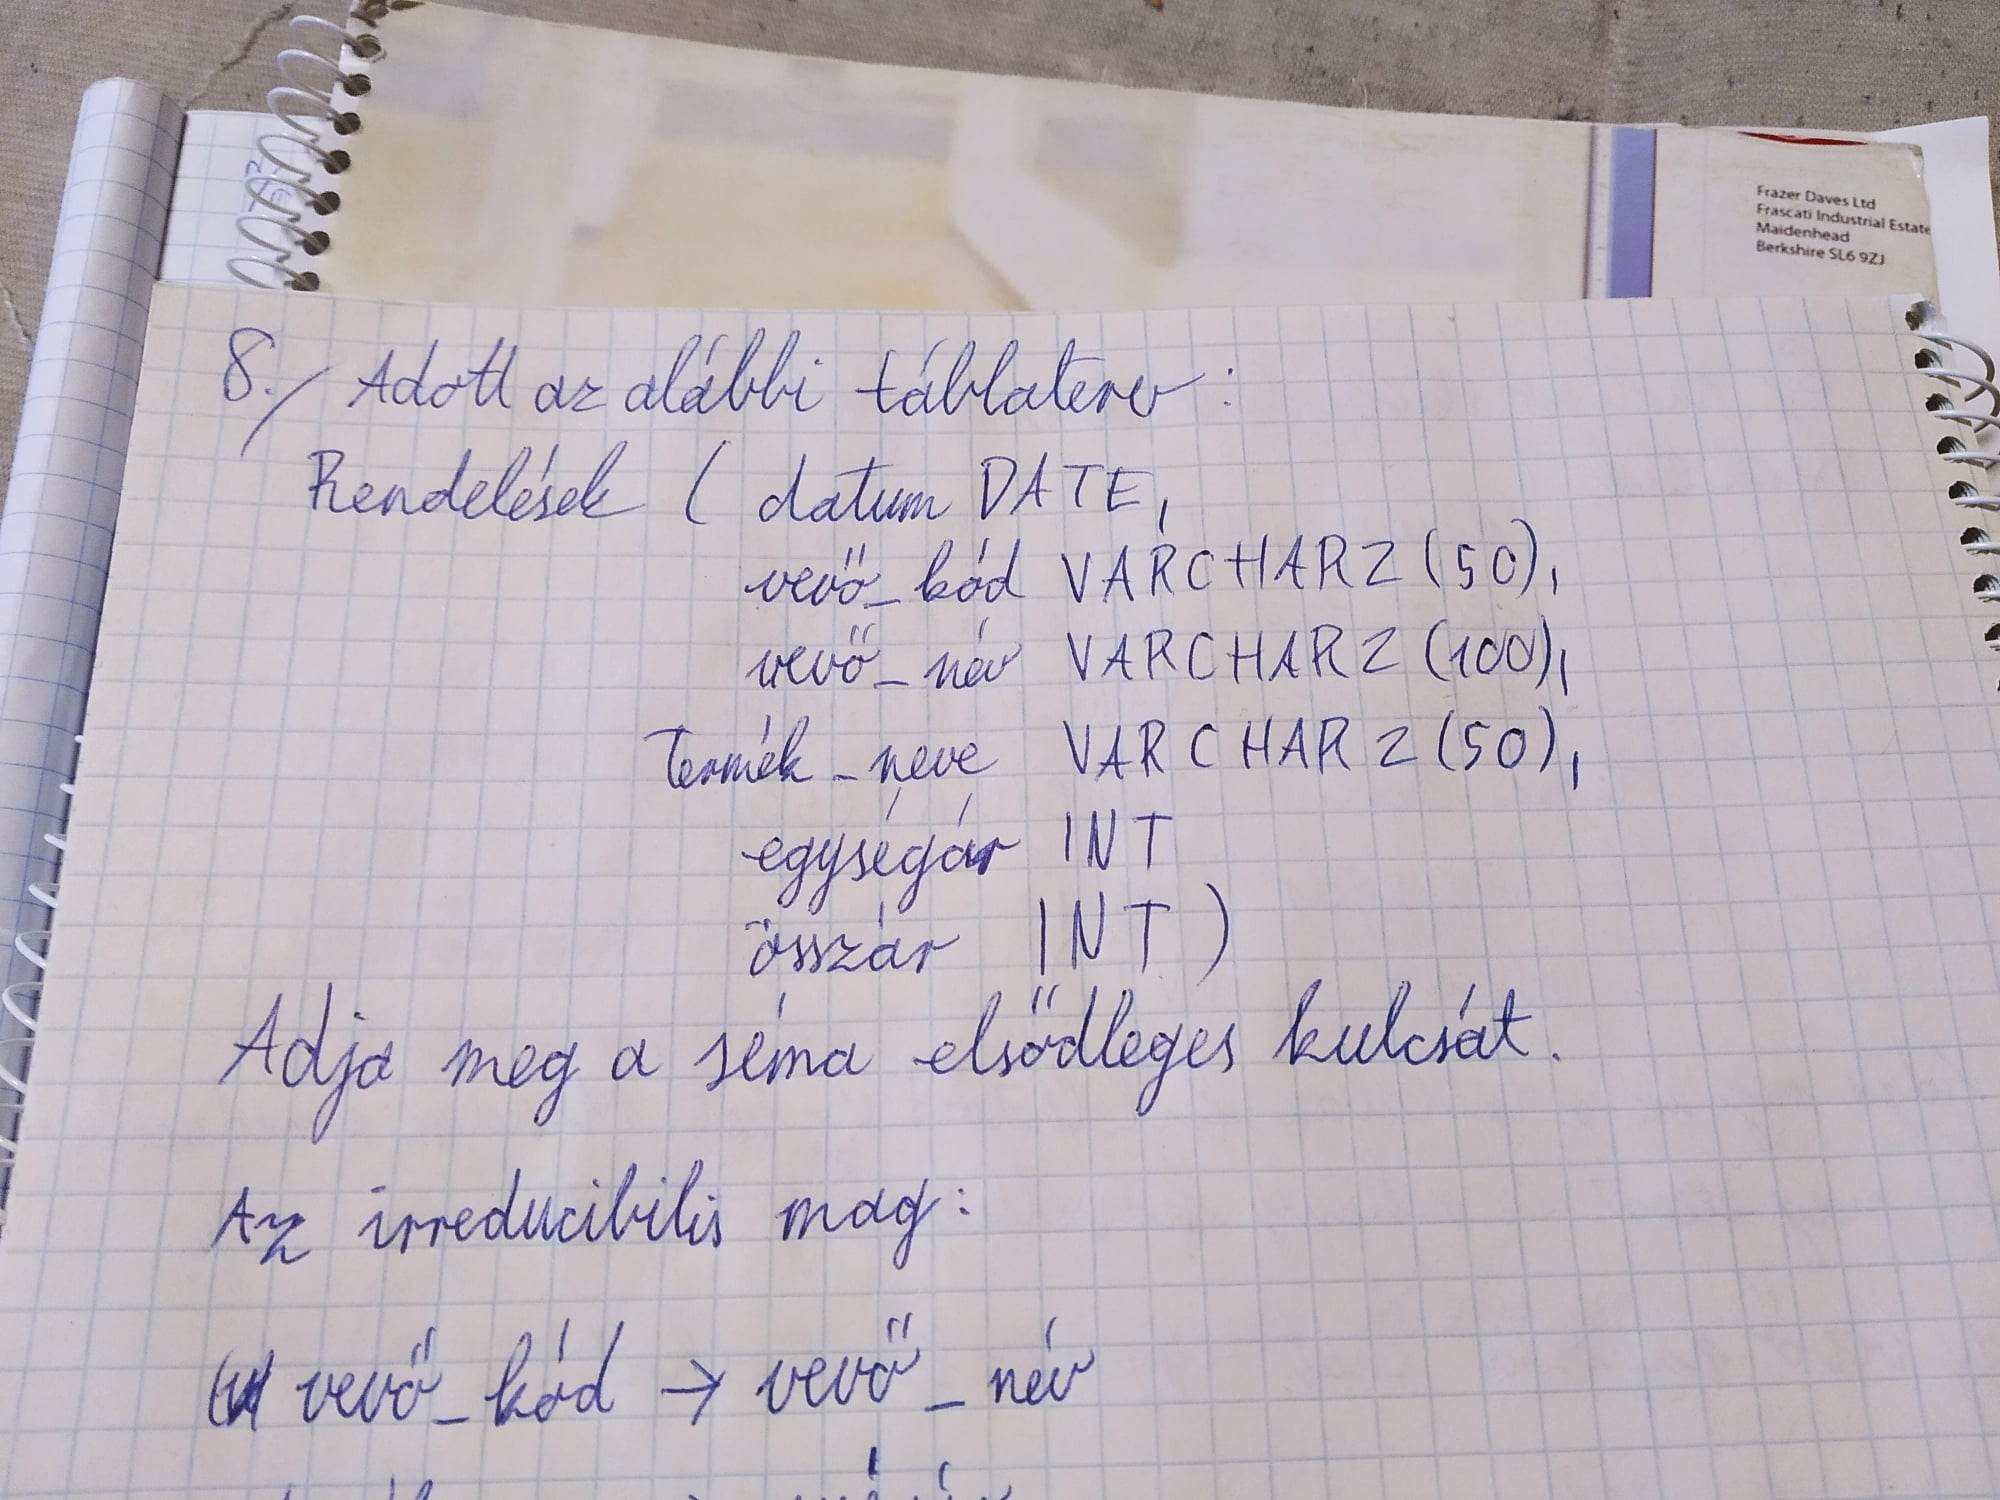 Frazer Daves Ltd
Frascati Industrial Estate
Maidenhead
Berkshire SL6 9ZJ
8./ Adott az alábbi táblaterv:
Rendelések ( datum DATE,
vevő_kód VARCHAR2(50),
vevő_név VARCHAR2(100),
Termék_neve VARCHAR2(50),
egységár INT
összár INT)
Adja meg a séma elsődleges kulcsát.
Az irreducibilis mag:
vevő_kód → vevő_név